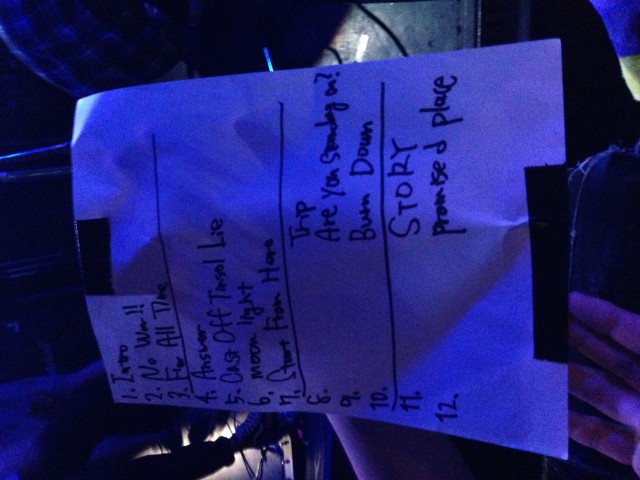 1. Intro
2. No War!!
3. For All Time
4. Answer
5. Cast Off Tinsel Lie
6. moon light
7. Start From Here
8. Trip
9. Are you standing on?
10. Burn Down
11. STORY
12. promised place